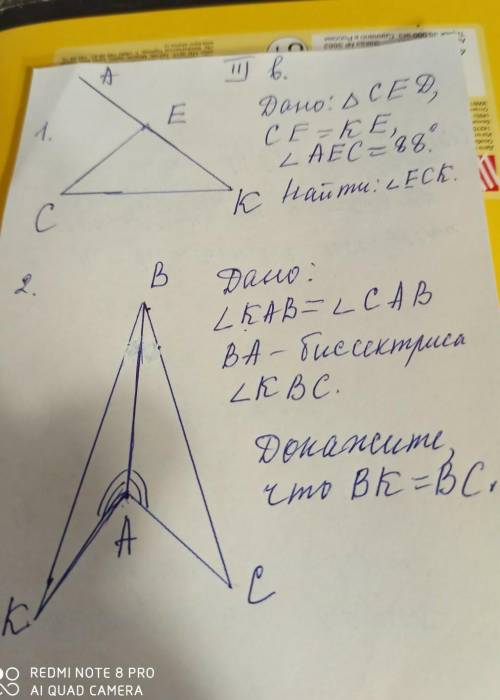 III в.
A
E
1.
C
K
Дано: △ CED,
CE = KE,
∠AEC = 88°.
Найти: ∠ECK.
2.
B
A
K
C
Дано:
∠KAB = ∠CAB
BA - биссектриса
∠KBC.
Докажите,
что BK = BC.
REDMI NOTE 8 PRO
AI QUAD CAMERA